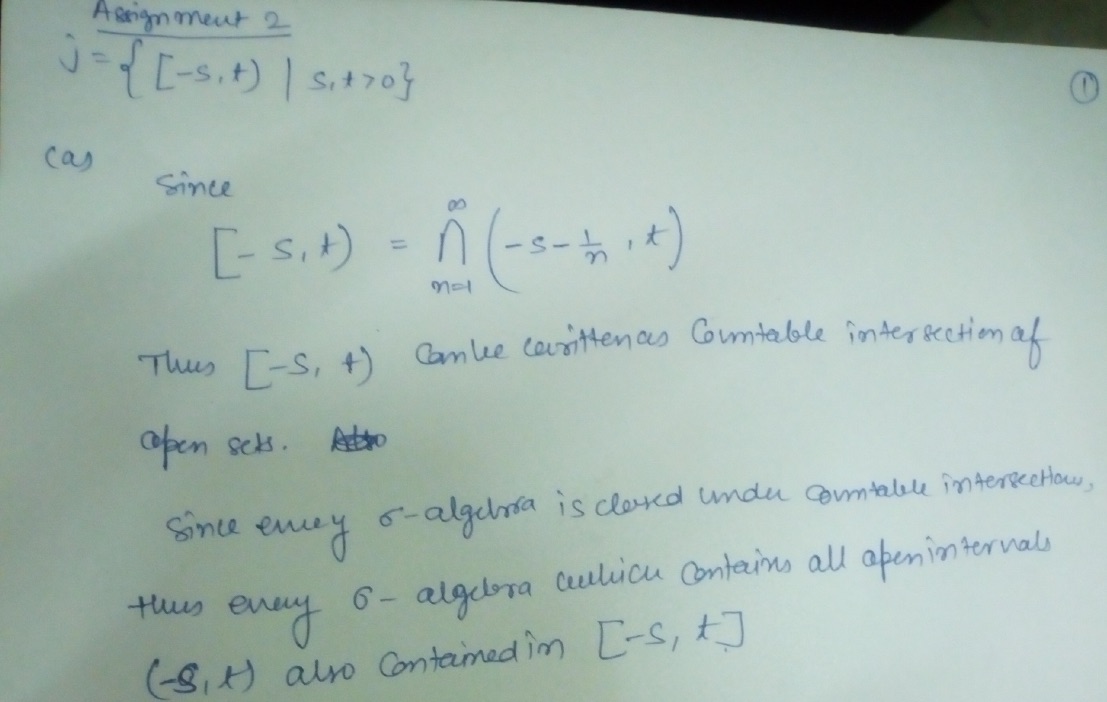 Assignment 2
j = { [-s, t) | s, t > 0 }
①
(a)
Since
[-s, t) = ∞ ⋂ n=1 (-s - 1/n , t)
Thus [-s, t) can be written as Countable intersection of
open sets.
Since every σ-algebra is closed under countable intersection,
thus every σ-algebra which contains all open intervals
(-s, t) also contained in [-s, t]